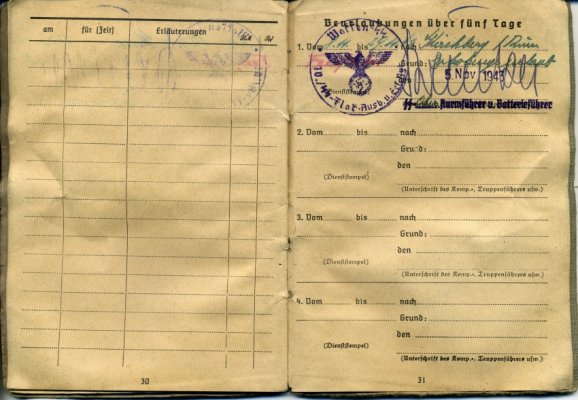 am für (Zeit) Erläuterungen
30
Beurlaubungen über fünf Tage
Waffen-SS
1. Vom bis nach Kirchberg
Grund: Erholungsurlaub
5. Nov. 1943
(Dienststempel)
SS- sturmführer u. Batterieführer
2. Vom bis nach
Grund:
den
(Dienststempel) (Unterschrift des Komp.-, Truppenführers usw.)
3. Vom bis nach
Grund:
den
(Dienststempel) (Unterschrift des Komp.-, Truppenführers usw.)
4. Vom bis nach
Grund:
den
(Dienststempel) (Unterschrift des Komp.-, Truppenführers usw.)
31